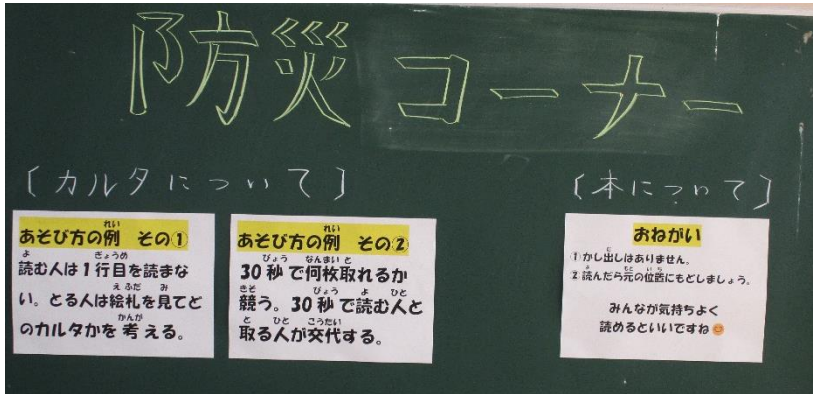 防災コーナー
〔カルタについて〕
あそび方の例 その①
読む人は1行目を読まな
い。とる人は絵札を見てど
のカルタかを考える。
あそび方の例 その②
30秒で何枚取れるか
競う。30秒で読む人と
取る人が交代する。
〔本について〕
おねがい
①かし出しはありません。
②読んだら元の位置にもどしましょう。
みんなが気持ちよく
読めるといいですね😊